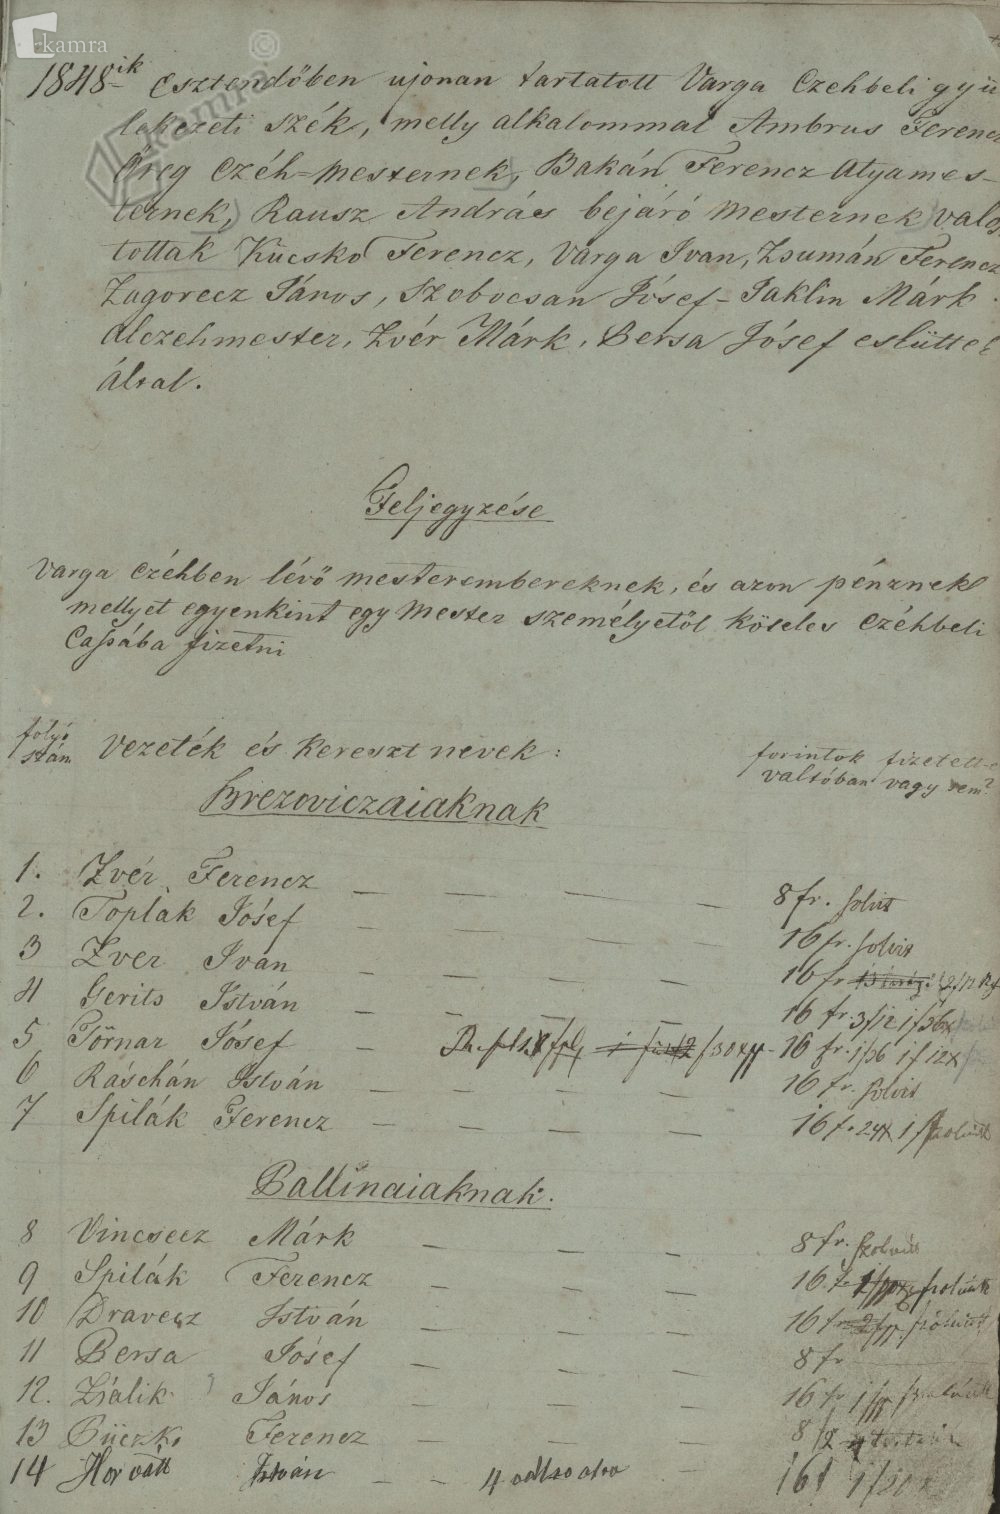 1848-ik Esztendőben ujonan tartatott Varga Czehbeli gyü
lekezeti szék, melly alkalommal Ambrus Ferencz
Öreg Czéh=Mesternek, Bakán Ferencz Atyames-
ternek, Rausz András bejáró Mesternek valos
tottak Kücsko Ferencz, Varga Ivan, Zsumán Ferencz
Zagorecz János, Szobocsan Jósef - Jaklin Márk
alczehmester, Zvér Márk, Bersa Jósef eslüttek
által.
Feljegyzése
Varga czéhben lévő mesterembereknek, és azon pénznek
mellyet egyenkint egy Mester személyetöl köteles czéhbeli
Cassába fizetni
folyó
szám Vezeték és Kereszt nevek: forintok fizetett-e
valtóban vagy nem?
Brezoviczaiaknak
1. Zvér Ferencz — — — — 8 fr. solvit
2. Toplak Jósef — — — — 16 fr. solvit
3 Zver Iván — — — — 16 fr
4 Gerits István — — — 16 fr. 3f12 1f36x
5 Törnar Jósef — 16 fr. 1f36 1f12x
6 Ráschán István — — — — 16 fr. solvit
7 Spilák Ferencz — — — — 16 f. 24x 1f
Ballinaiaknak.
8 Vincsecz Márk — — — 8 fr.
9 Spilák Ferencz — — — 16 f.
10 Dravecz István — — — 16 f
11 Bersa Jósef — — — 8 fr
12. Zsalik János — — — 16 fr
13 Püczko Ferencz — — — 8
14 Horvátt István — — 4 — 16f 1f20x